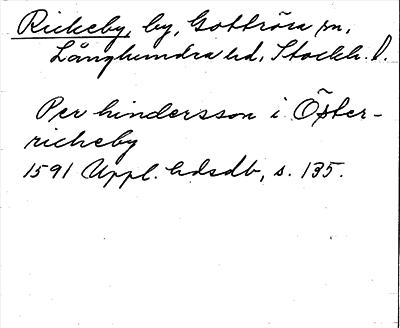 Rickeby, by, Gottröra sn,
Långhundra hd, Stockh. l.
Per hindersson i Öster-
rickeby
1591 Uppl. hdsdb, s. 135.